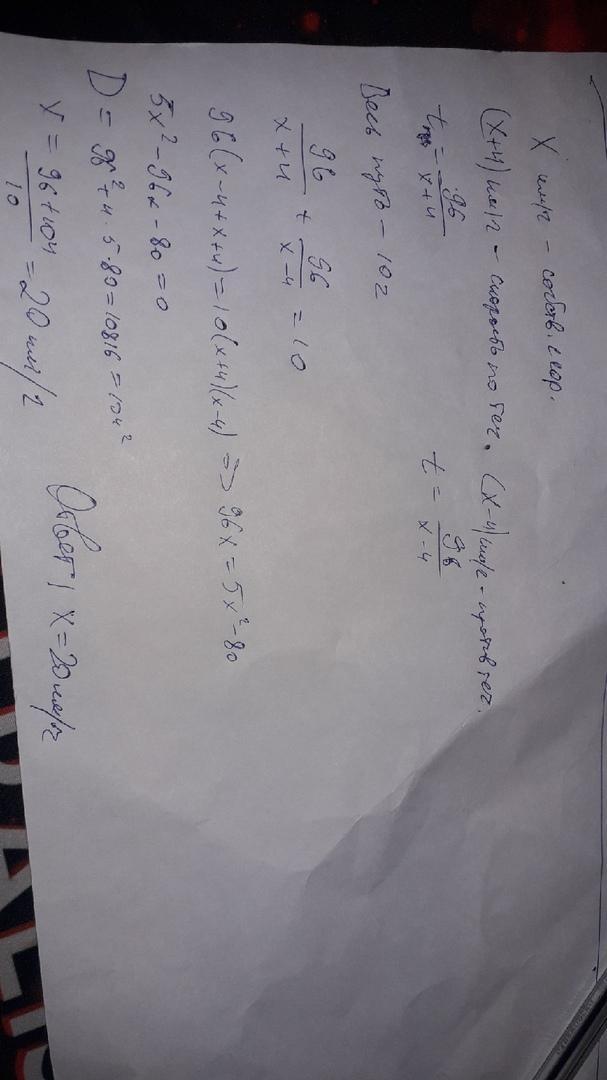 X км/ч - собств. скор.
(x+4) км/ч - скорость по теч. (x-4) км/ч - против теч.
t = 96/(x+4) t = 96/(x-4)
Весь путь - 10 ч
96/(x+4) + 96/(x-4) = 10
96(x-4+x+4) = 10(x+4)(x-4) => 96x = 5x²-80
5x²-96x-80=0
D = 96²+4·5·80=10816=104²
x = (96+104)/10 = 20 км/ч
Ответ: x=20 км/ч